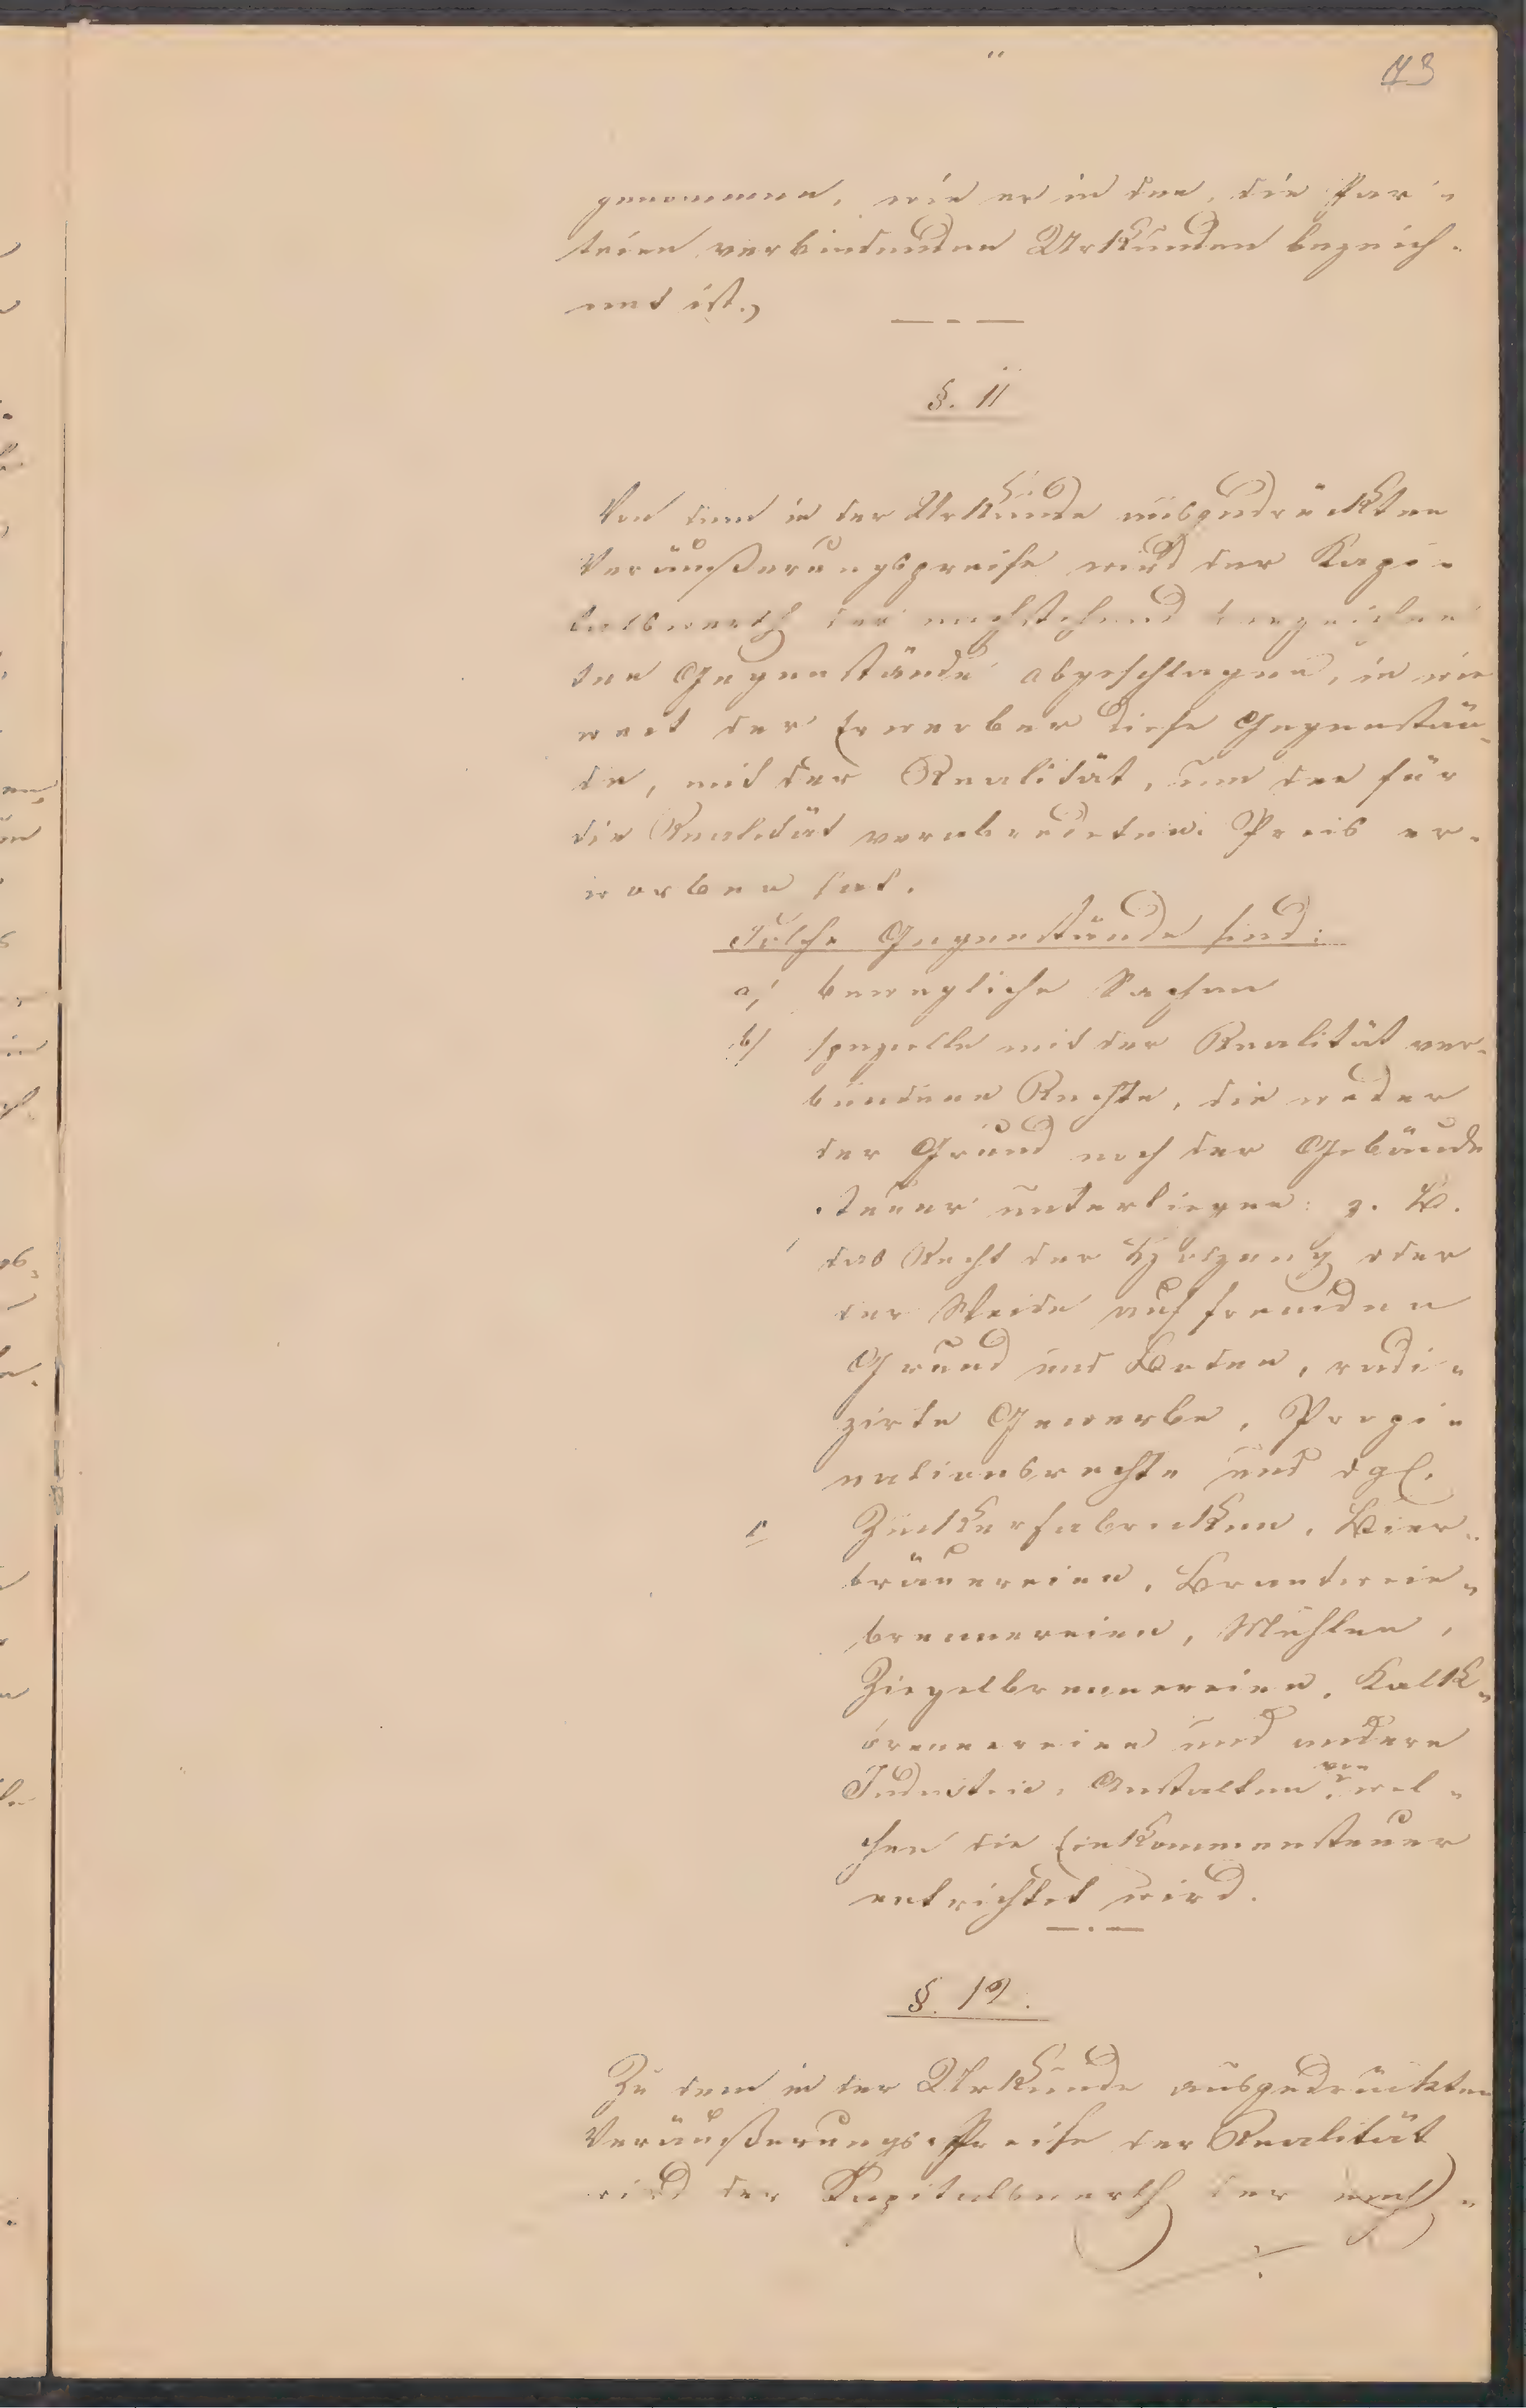 73
genommen, wie er in den, die Par-
teien verbindenden Urkunden bezeich-
net ist.
§. 11
Von dem in der Urkunde ausgedrückten
Veräußerungspreise wird der Kapi-
talswerth der nachstehend bezeichne
ten Gegenstände abgeschlagen, in wie
weit der Erwerber diese Gegenstän-
de, mit der Realität, um den für
die Realität verabredeten Preis er-
worben hat.
Solche Gegenstände sind:
a/ bewegliche Sachen
b/ spezielle mit der Realität ver-
bundene Rechte, die weder
der Grund noch der Gebäude
steuer unterliegen: z. B.
das Recht der Holzung oder
der Weide auf fremden
Grund und Boden, radi-
zirte Gewerbe, Propi-
nationsrechte und dgl.
c Zuckerfabricken, Bier-
bräuereien, Brandwein-
brennereien, Mühlen,
Ziegelbrennereien, Kalk-
brennereien und andere
Industrie, Anstalten, von wel-
chen die Einkommensteuer
entrichtet wird.
§. 12.
Zu dem in der Urkunde ausgedrückten
Veräußerungs-Preise der Realität
wird der Kapitalswerth der nach-